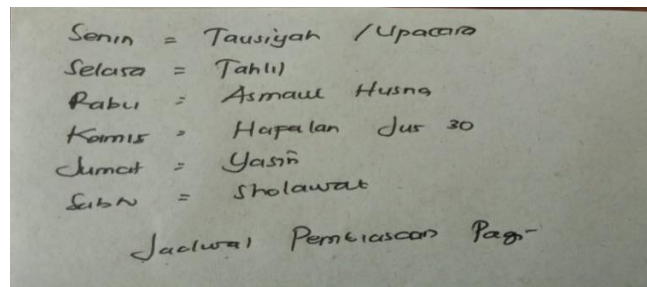 Senin = Tausiyah / Upacara
Selasa = Tahlil
Rabu = Asmaul Husna
Kamis = Hapalan Jus 30
Jumat = Yasin
Sabtu = Sholawat
Jadwal Pembiasaan Pagi